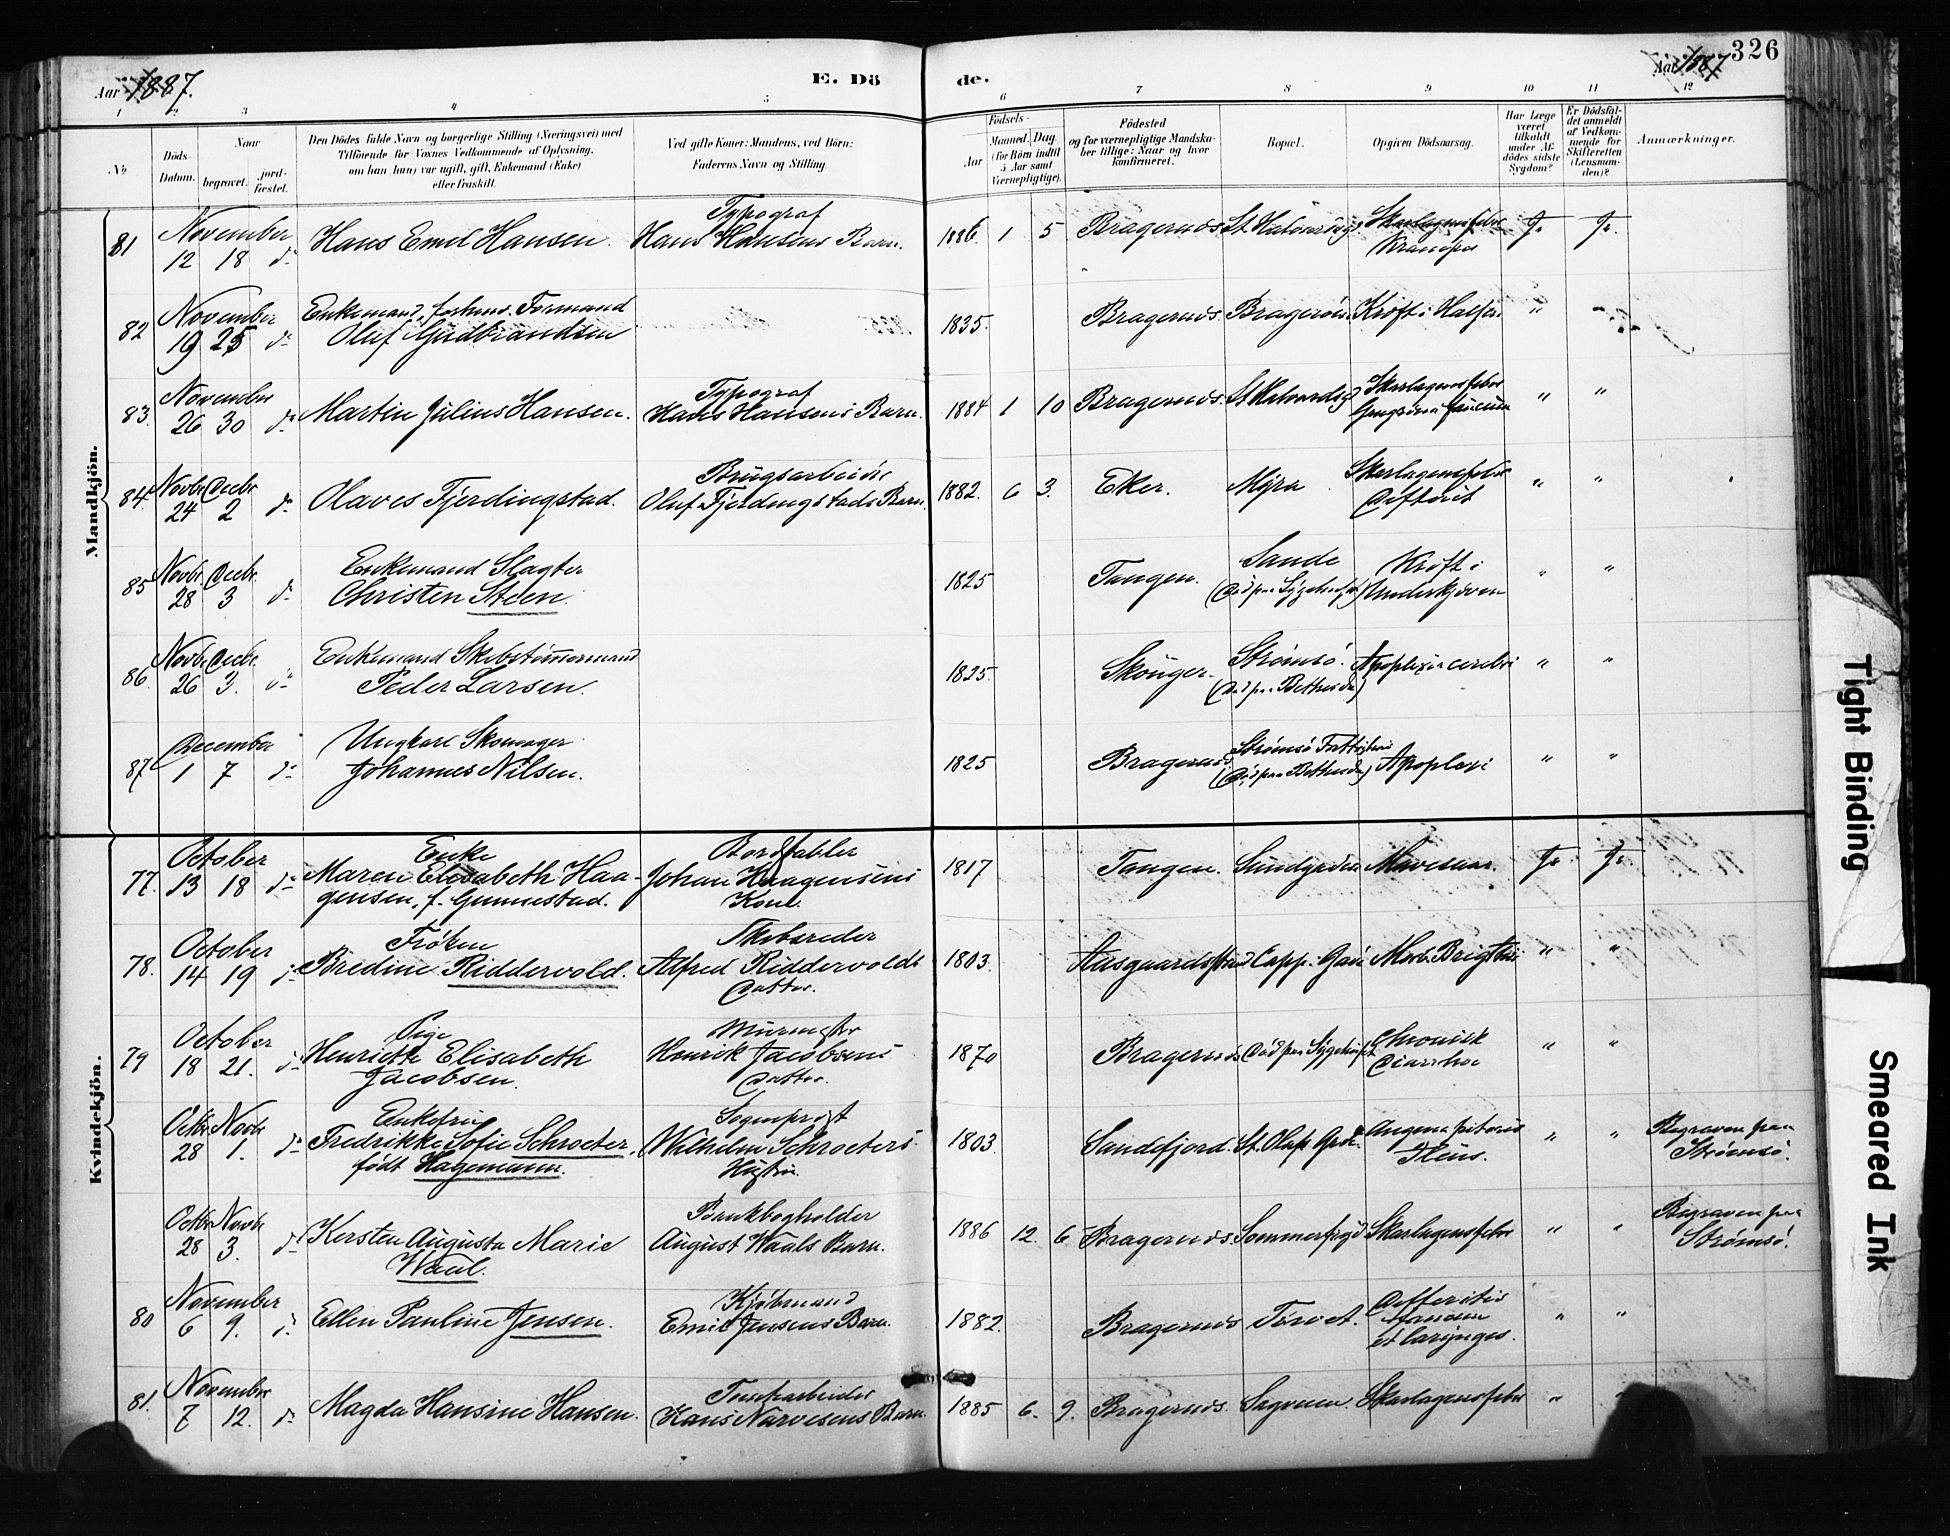 326
Aar 1887.
E. Dö
de.
Aar 1887
1 2 3 4 5 6 7 8 9 10 11 12
No
Döds Datum.
Naar
begravet.
jordfæstet.
Den Dödes fulde Navn og borgerlige Stilling (Næringsvei) med
Tilföiende for Voxnes Vedkommende af Oplysning,
om han (hun) var ugift, gift, Enkemand (Enke)
eller fraskilt.
Ved gifte Koner: Mandens, ved Börn:
Faderens Navn og Stilling.
Födsels-
Aar
Maaned. Dag
(for Börn indtil
5 Aar samt
Værnepligtige).
Födested
og for værnepligtige Mandskaber
tillige: Naar og hvor
konfirmeret.
Bopæl.
Opgiven Dödsaarsag.
Har Læge
været
tilkaldt
under Afdödes
sidste
Sygdom?
Er Dödsfaldet
anmeldt
af Vedkommende
for
Skifteretten
(Lensmanden)?
Anmærkninger.
Mandkjön.
81 November 12 18 do Hans Emil Hansen. Typograf Hans Hansens Barn. 1886. 1 5 Bragernes Skarlagensfeber Krampe Ja Ja
82 November 19 25 do Enkemand, Formand Oluf Gudbrandsen 1835. Bragernes. Bragerøen Kræft i Halsen " "
83. November 26 30 do Martin Julius Hansen. Typograf Hans Hansens Barn. 1884 1 10 Bragernes. Skarlagensfeber " "
84. Novbr. Decbr. 24 2 do Olaves Fjerdingstad. Brugsarbeider Oluf Fjerdingstads Barn. 1882. 6 3. Eker. Myra Skarlagensfeber Difterit " "
85 Novbr. Decbr. 28 3 do Enkemand Slagter Christen Steen. 1825 Tangen. Sande (Død paa Sygehuset) Kræft i Underkjæven " "
86. Novbr. Decbr. 26 3. do Enkemand Skibstømmermand Peder Larsen. 1825. Skouger. Strømsö. (Død paa Bethesda) Apoplexia cerebri " "
87 December 1 7 do Ungkarl Skomager Johannes Nilsen. 1825 Bragernes Strømsö (Død paa Bethesda) Apoplexi " "
Kvindekjön.
77. October 13 18 do Enke Maren Elisabeth Haagensen, f. Gunnestad. Johan Haagensens Kone. 1817 Tangen. Mavesaar. Ja. Ja
78. October 14 19 do Frøken Bredine Riddervold. Skibsreder Alfred Riddervolds Datter. 1803. Aasgaardstrand Capp. Gade Morb. Brigthii " "
79 October 18 21. do Pige Henriette Elisabeth Jacobsen. Murmester Henrik Jacobsens Datter. 1870 Bragernes Død paa Sygehuset Chronisk Diarrhoe " "
Octbr. Novbr. 28 1. do Enkefru Fredrikke Sofie Schroeter, født Hagemann. Sogneprest Wilhelm Schroeters Hustru. 1803. Sandefjord. St. Olafs Gade Angina pectoris " " Begraven paa Strømsö.
Octbr. Novbr. 28 3. do Kirsten Augusta Marie Waal. Bankbogholder August Waals Barn. 1886 12. 6 Bragernes. Skarlagensfeber " " Begraven paa Strømsö.
80 November 6 9. do Ellen Pauline Jensen. Kjøbmand Emil Jensens Barn. 1882. Bragernes Torvet. et laryngis. " "
81. November 7 12. do Magda Hansine Hansen. Hans Narvesens Barn. 1885 6. 9. Bragernes. Skarlagensfeber " "
Tight Binding
Smeared Ink